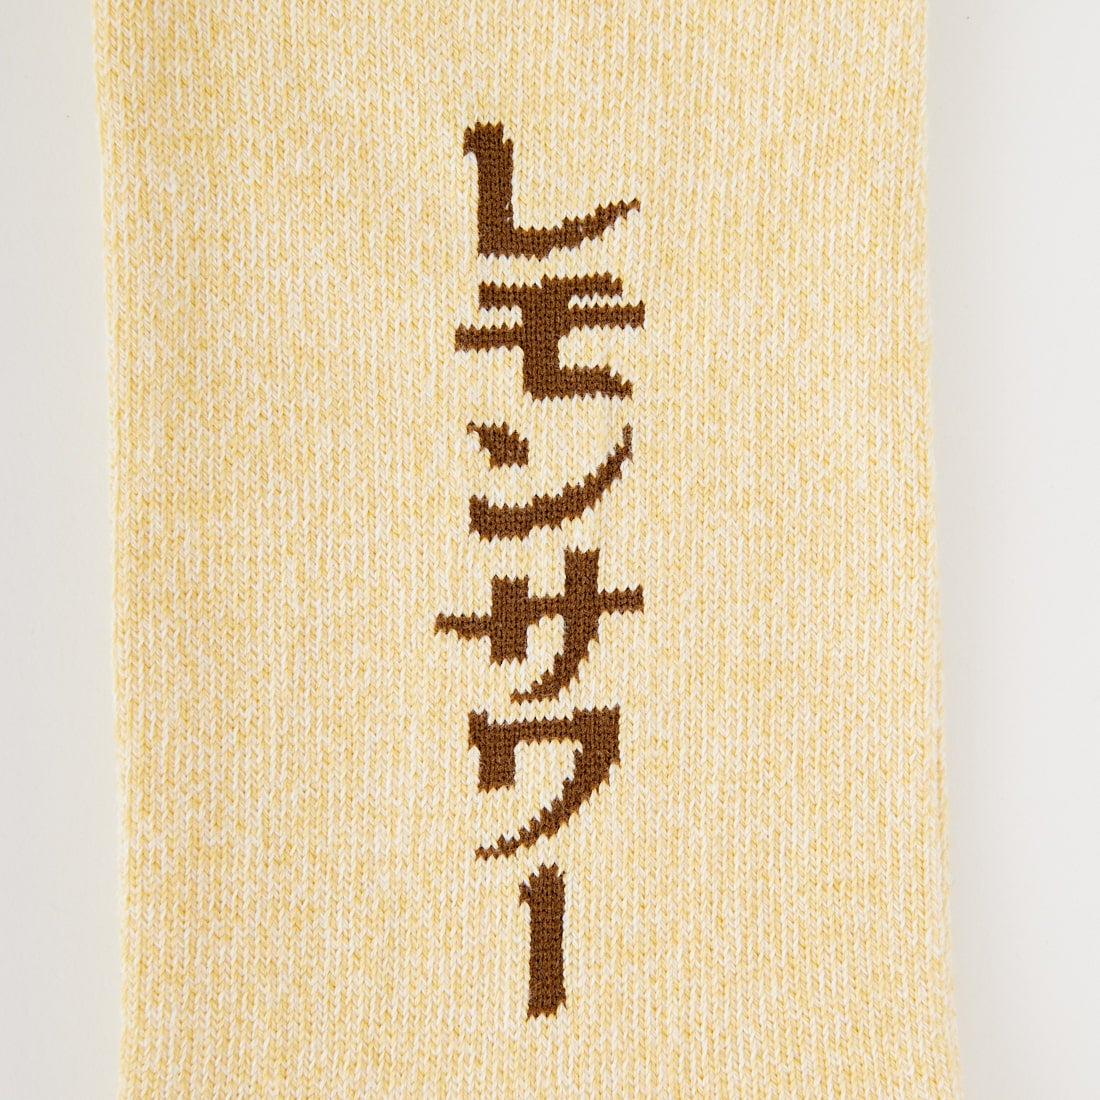 レモンサワー